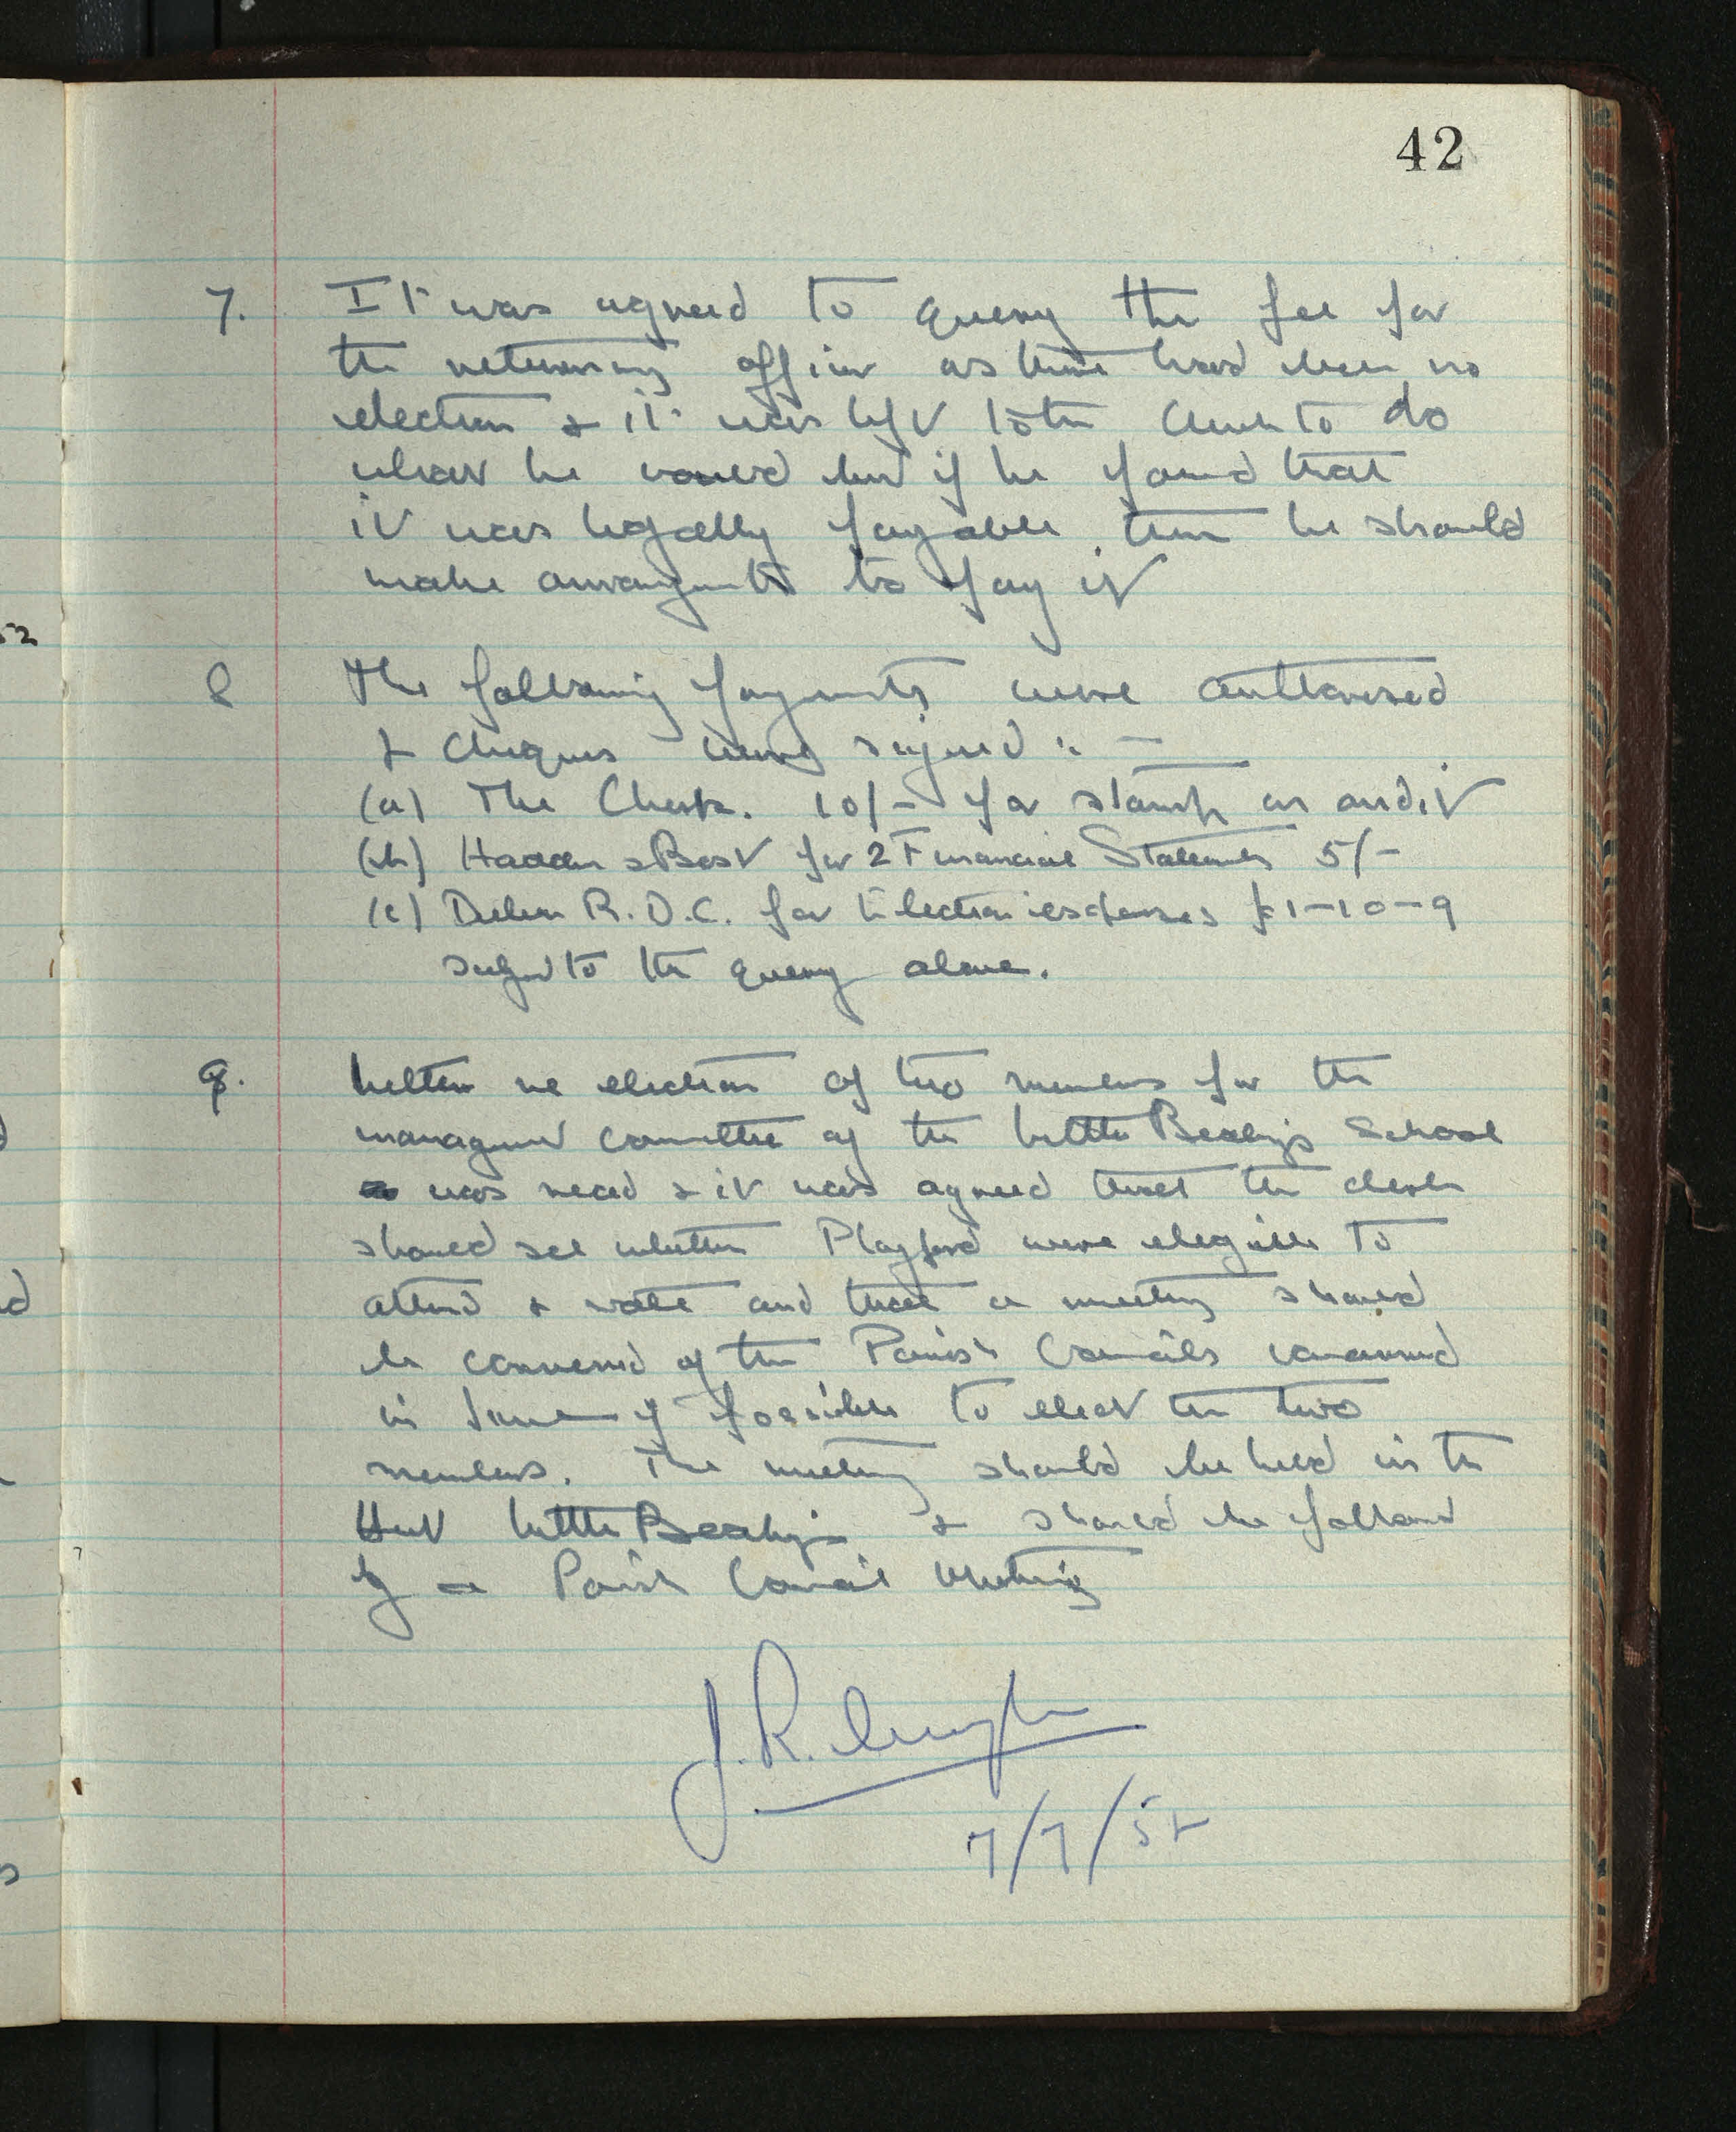 42
7. It was agreed to query the fee for
the returning officer as there had been no
election & it was left to the Clerk to do
what he could but if he found that
it was legally payable then he should
make arrangements to pay it
52
8 The following payments were authorised
& cheques were signed :-
(a) The Clerk. 10/- for stamp on audit
(b) Hadden & Best for 2 Financial Statements 5/-
(c) Deben R.D.C. for Election expenses £1-10-9
subject to the query above.
9. Letter re election of two members for the
management committee of the Little Bealings School
was read & it was agreed that the clerk
should see whether Playford were eligible to
attend & vote and that a meeting should
be convened of the Parish Councils concerned
in June if possible to elect the two
members. The meeting should be held in the
Hut Little Bealings & should be followed
by a Parish Council Meeting
J.R.
7/7/52